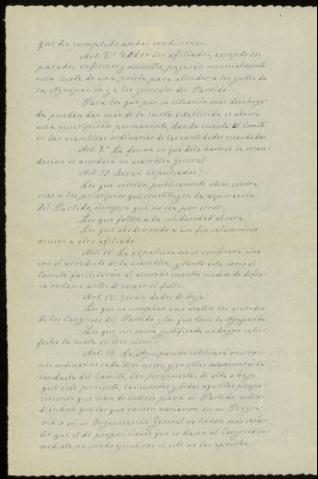 que ha cumplido ambas condiciones.
Art. 8.º Todos los afiliados, excepto los
parados, enfermos y ausentes, pagarán mensualmente
una cuota de una peseta para atender a los gastos de
la Agrupación y a los generales del Partido.
Para los que por su situación más desahoga-
da puedan dar más de la cuota establecida se abrirá
una suscripción permanente, dando cuenta el Comité
en las asambleas ordinarias de las cantidades recaudadas.
Art. 9.º La forma en que debe hacerse la recau-
dación se acordará en asamblea general.
Art. 10. Serán expulsados:
Los que viertan públicamente ideas contra-
rias a los principios que constituyen la aspiración
del Partido, siempre que no sea por error.
Los que falten a la solidaridad obrera.
Los que obedeciendo a un fin calumnioso
acusen a otro afiliado.
Art. 11. La expulsión no se verificará sino
con el veredicto de la asamblea, y tanto ésta como el
Comité facilitarán al acusado cuantos medios de defen-
sa reclame antes de recaer el fallo.
Art. 12. Serán dados de baja:
Los que no cumplan o no acaten los acuerdos
de los Congresos del Partido y los que tome la Agrupación.
Los que sin causa justificada no hayan satis-
fecho la cuota en tres meses.
Art. 13. La Agrupación celebrará reunio-
nes ordinarias cada tres meses, y en ellas examinará la
conducta del Comité, las propuestas de alta o baja
que éste presente, las cuentas y todas aquellas propo-
siciones que sean de interés para el Partido, enten-
diéndose que las que causen variación en su Progra-
ma o en su Organización General no tienen más carác-
ter que el de proposiciones que se hacen al Congreso in-
mediato, no siendo ejecutivas si allí no las aprueba.